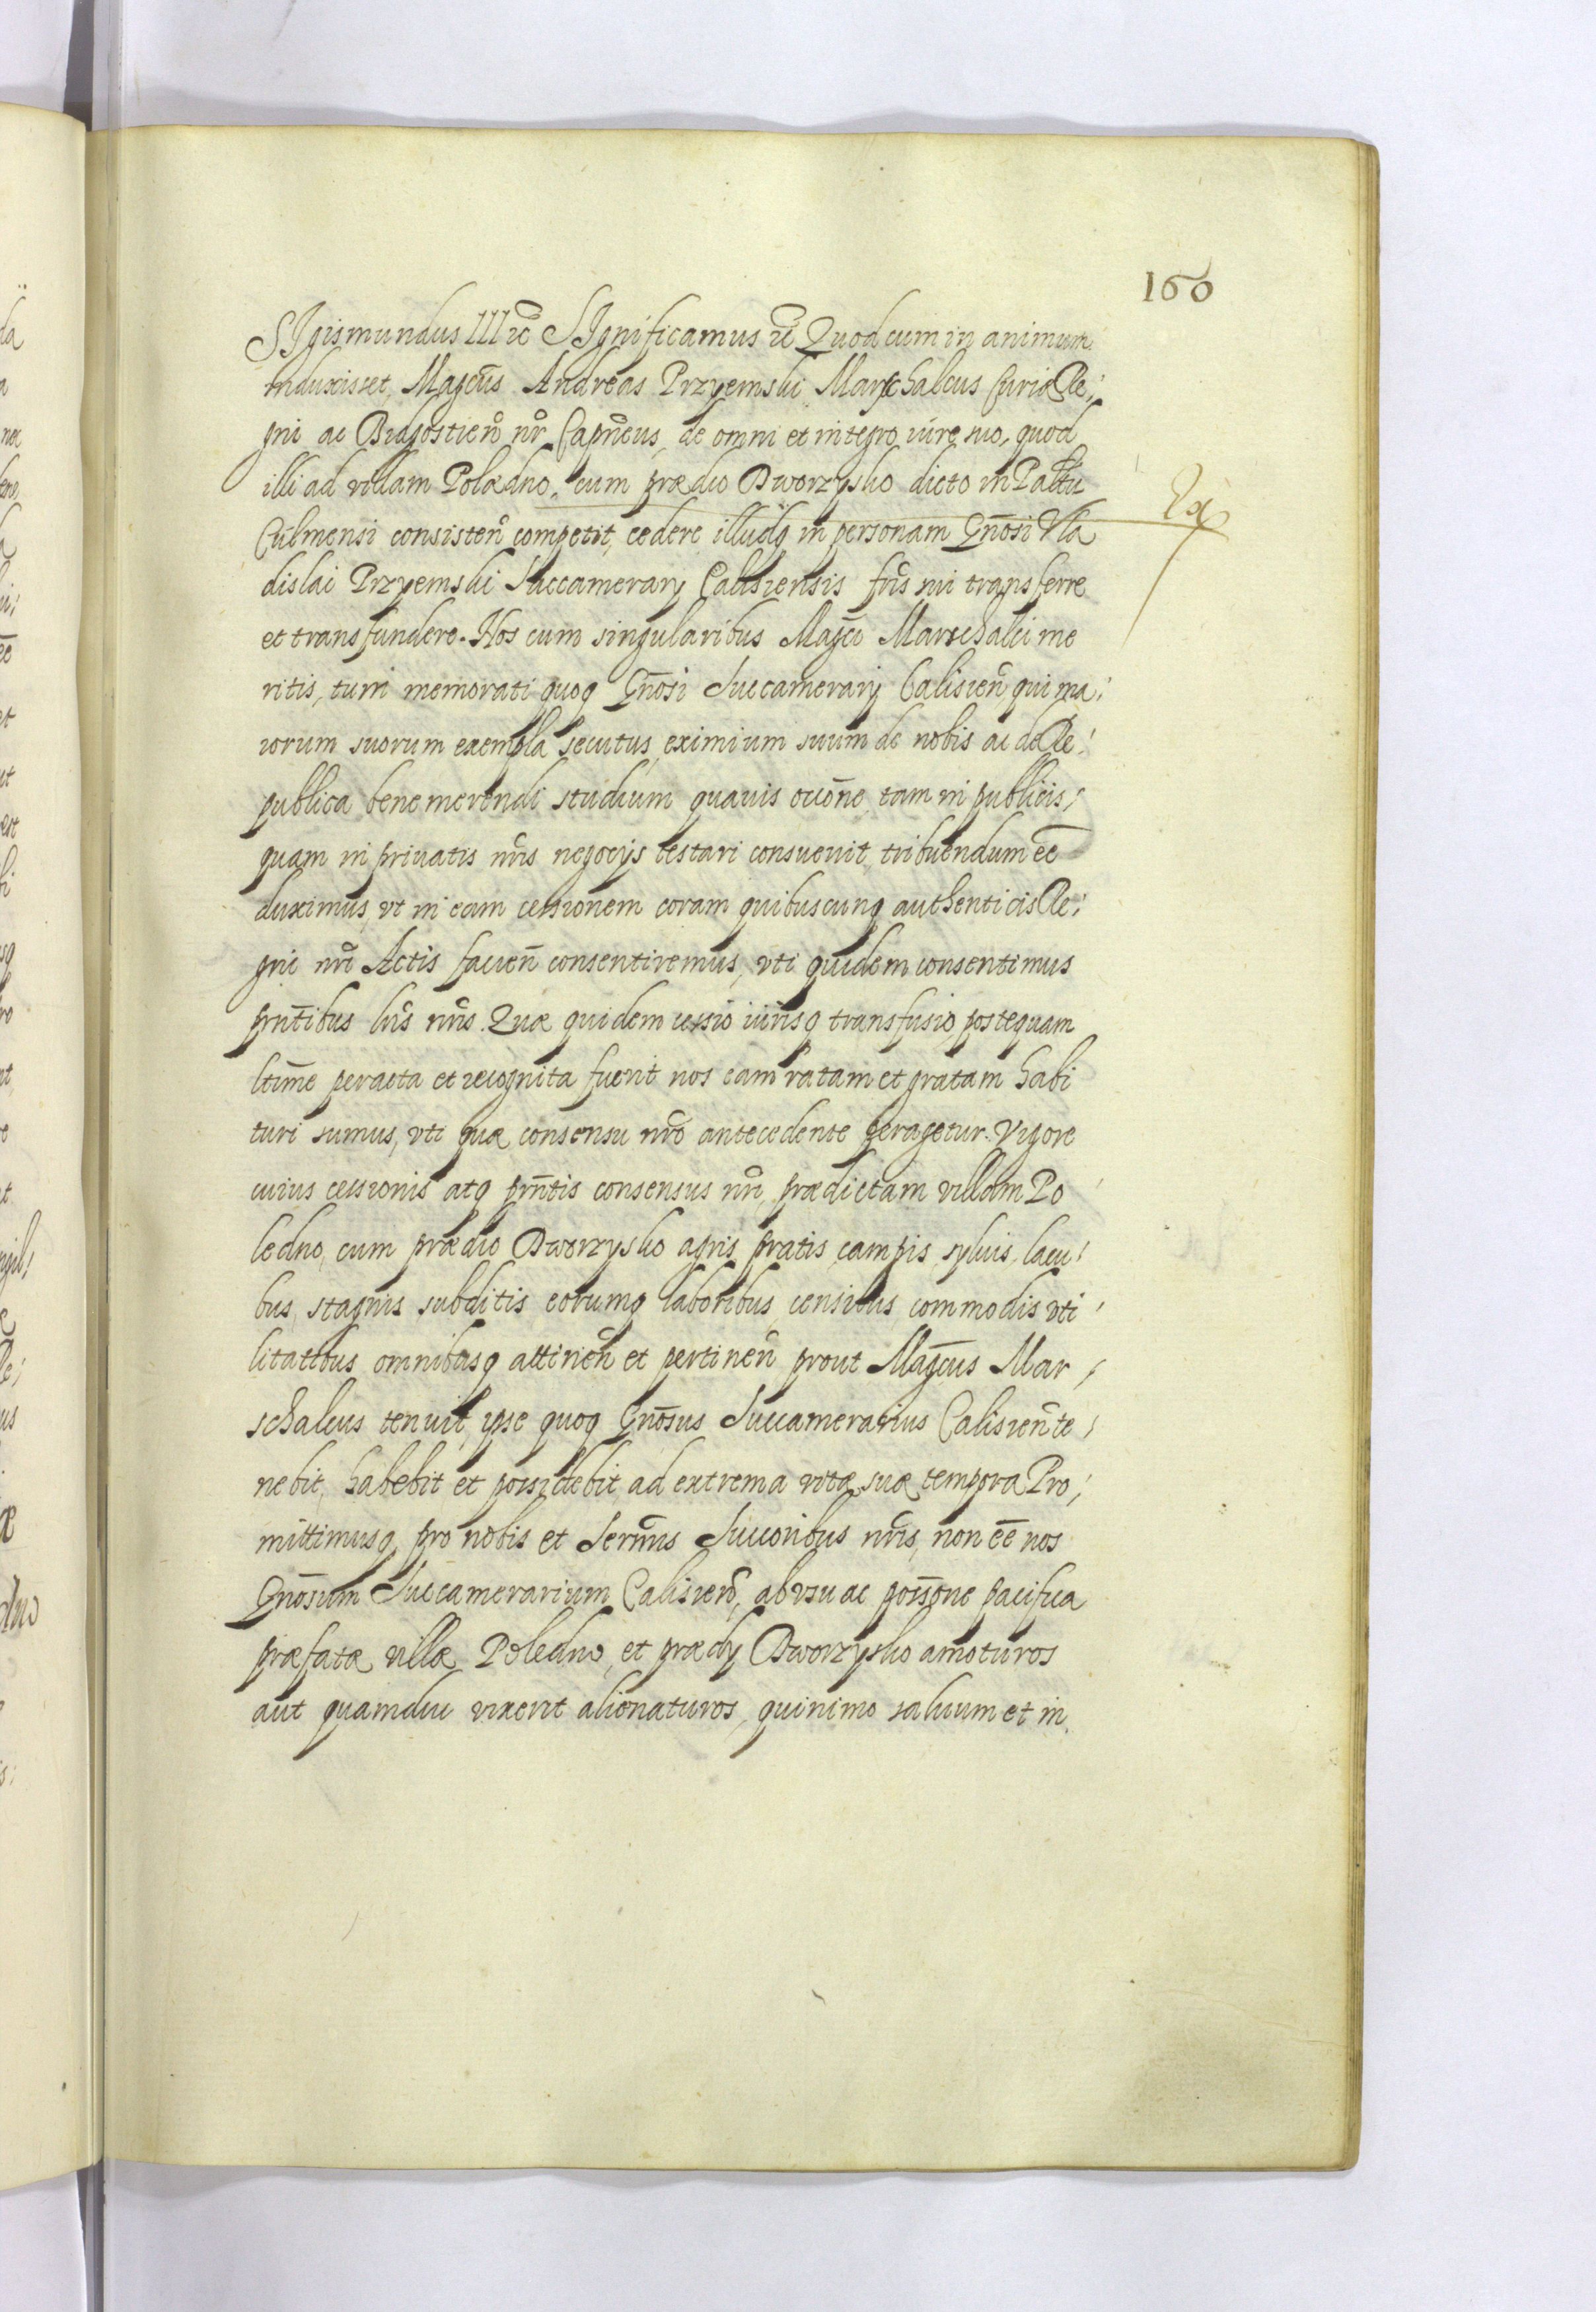 160
SIgismundus III etc SIgnificamus etc Quod cum in animum
induxisset, Magcus Andreas Przyemski Marschalcus Curiae Re¬
gni ac Bidgostien nr Capneus, de omni et integro iure suo, quod
illi ad villam Polaedno, cum praedio Dworzysko dicto in Pałtu
Culmensi consisten competit, cedere illudq in personam Gnosi Vla
dislai Przyemski Succamerarij Calisiensis fris sui transferre
et transfundere. Nos cum singularibus Magci Marschalci me
ritis, tum memorati quoq Gnosi Succamerarij Calisien qui ma¬
iorum suorum exempla secutus, eximium suum de nobis ac de Re¬
publica bene merendi studium quauis occone, tam in publicis,
quam in priuatis nris negocijs testari consueuit, tribuendum ee
duximus, vt in eam cessionem coram quibuscunq authenticis Re¬
gni nri Actis facien consentiremus, vti quidem consentimus
pntibus lris nris. Quae quidem cessio iurisq transfusio, postequam
ltime peracta et recognita fuerit nos eam ratam et gratam habi
turi sumus, vti quae consensu nro antecedente peragetur. Vigore
cuius cessionis atq pntis consensus nri, praedictam villam Po
ledno, cum praedio Dworzysko agris, pratis, campis, syluis, lacu¬
bus, stagnis subditis eorumq laboribus, censibus commodis vti
litatibus omnibusq attinen et pertinen prout Magcus Mar
schalcus tenuit, ipse quoq Gnosus Succamerarius Calisien te
nebit, habebit et possidebit, ad extrema vitae suae tempora Pro¬
mittimusq, pro nobis et Sermis Succoribus nris, non ee nos
Gnosum Succamerarium Calisien, ab vsu ac possone pacifica
praefatae villae Poledno, et praedij Dworzysko amoturos
aut quamdiu vixerit alienaturos, quinimo saluum et in